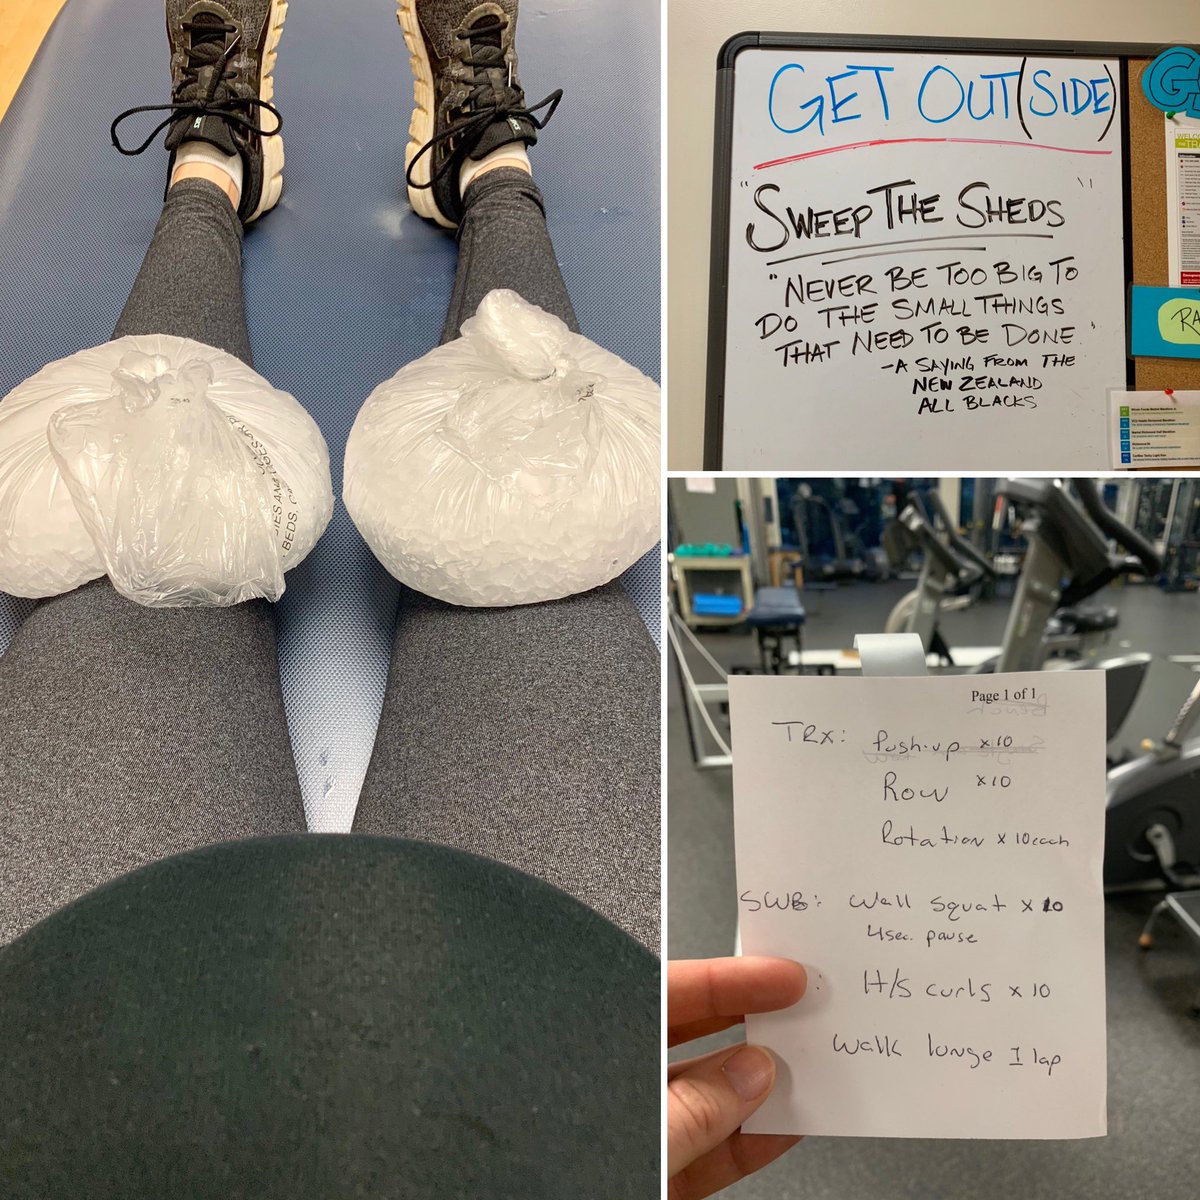 GET OUT(SIDE)
"SWEEP THE SHEDS"
"NEVER BE TOO BIG TO
DO THE SMALL THINGS
THAT NEED TO BE DONE."
-A SAYING FROM THE
NEW ZEALAND
ALL BLACKS
RA
BEDS, C
Page 1 of 1
TRX: Push-up x 10
Row x 10
Rotation x 10 each
SWB: Wall squat x 10
4sec. pause
: H/S curls x 10
Walk lunge 1 lap